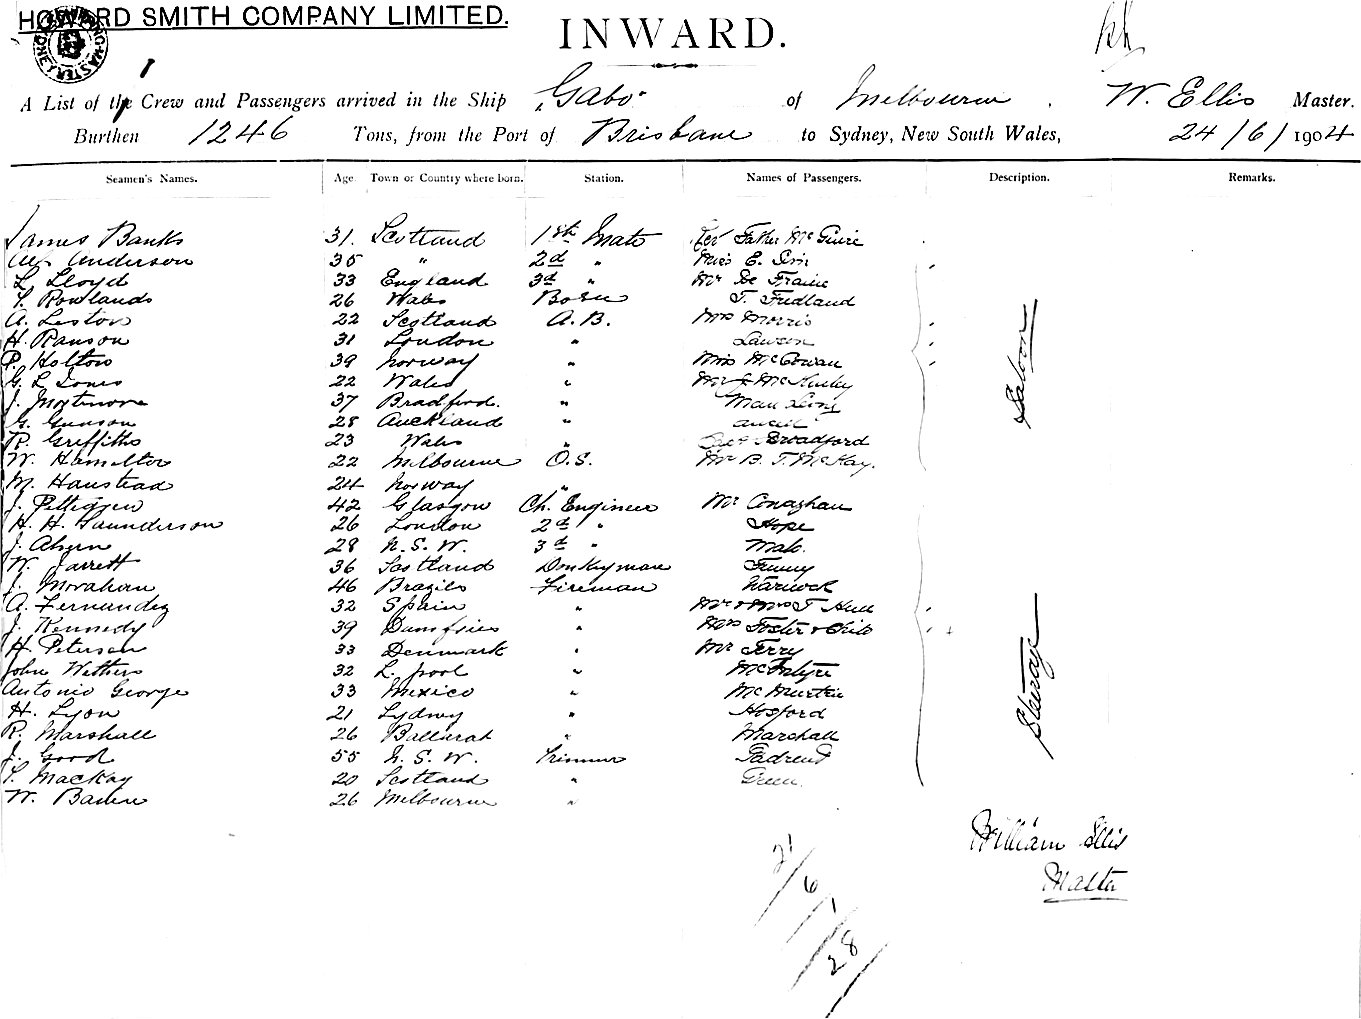 HOWARD SMITH COMPANY LIMITED.
INWARD.
A List of the Crew and Passengers arrived in the Ship "Gabo" of Melbourne. W. Ellis Master.
Burthen 1246 Tons, from the Port of Brisbane to Sydney, New South Wales, 24/6/1904
Seamen's Names. Age Town or Country where born. Station. Names of Passengers. Description. Remarks.
James Banks 31. Scotland 1st Mate Rev Father McGuire
Anderson 35 " 2d " Miss E. Sim
L. Lloyd 33 England 3d " Mr De Fraine
Rowlands 26 Wales Bosun T. Fridland
A. Leston 22 Scotland A.B. Mrs Morris
H. Ranson 31 London " Lawson
P. Holton 39 Norway " Miss McCowan
G. L. Jones 22 Wales " Mr J McKinley
J. Mortimore 37 Bradford. "
G. Gunson 28 Auckland "
R. Griffiths 23 Wales " Broadford
W. Hamilton 22 Melbourne O.S. Mr B. T. McKay.
Saloon
M. Haustead 24 Norway "
J. Pettigrew 42 Glasgow Ch. Engineer Mr Conaghan
H. H. Saunderson 26 London 2d " Hope
J. Ahern 28 N.S.W. 3d "
W. Jarrett 36 Scotland Donkeyman
J. Morahan 46 Brazils Fireman Warwick
A. Fernandez 32 Spain " Mr & Mrs T Hull
J. Kennedy 39 Dumfries " Mrs Foster & Child
H. Petersen 33 Denmark " Mr Terry
John Withers 32 L. pool " McIntyre
Antonio George 33 Mexico " McMurtrie
H. Lyon 21 Lydney " Hosford
R. Marshall 26 Ballarat " Marshall
J. Good 55 N.S.W. Trimmer
MacKay 20 Scotland " Green.
W. 26 Melbourne "
Steerage
William Ellis
Master
21/6/
28